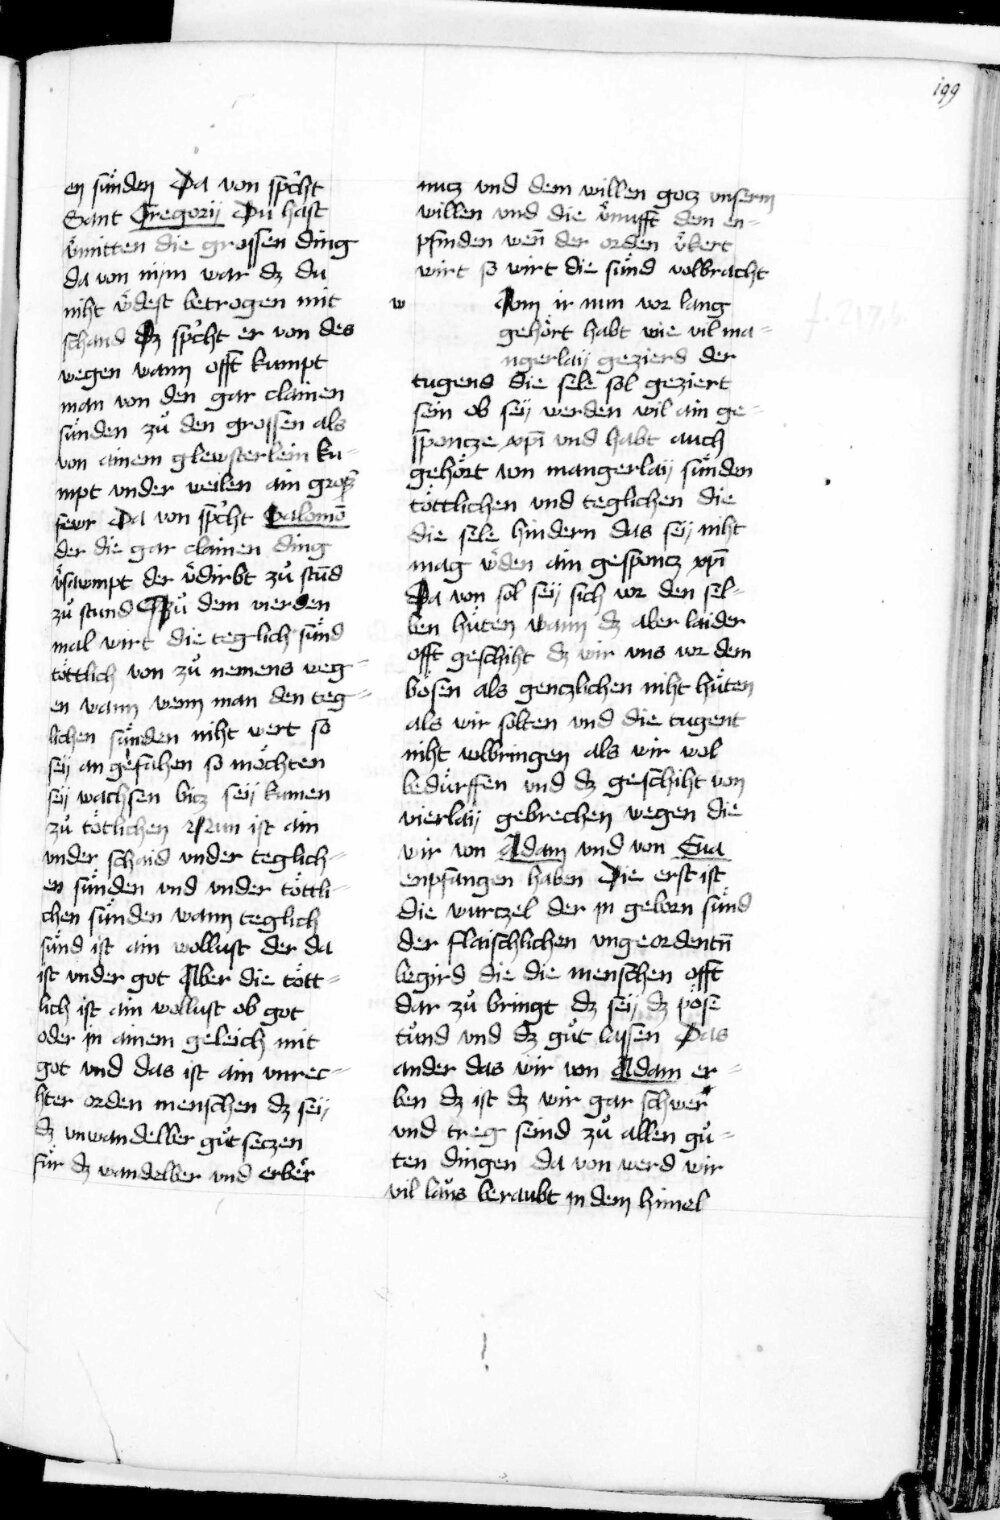 199
en sünden Da von spͦcht
Sant Gregorij Du hast
v̈mitten die grossen ding
da von nym war dz du
niht ẅdest betrogen mit
schand Dz spͦcht er von des
wegen wann offt kumpt
man von den gar clainen
sünden zuͦ den grossen als
von ainem glewsterlein ku-
mpt vnder weilen ain groß
fewr Da von spͦcht Salomō
der die gar clainen ding
v̈sawmpt der v̈dirbt zuͦ stūd
zuͦ stund Zuͦ dem vierden
mal wirt die teglich sünd
töttlich von zuͦ nemens weg-
en wann wenn man den teg-
lichen sünden niht wert so
seij an gefahen so möchten
seij wachsen bicz seij kamen
zuͦ tötlichen Nun ist ain
vnder schaid vnder teglich-
en sünden vnd vnder töttli-
chen sünden wann teglich
sünd ist ain wollust der da
ist vnder got Aber die tött-
lich ist ain wollust ob got
oder in ainem geleich mit
got vnd das ist ain vnrec-
hter orden menschen dz seij
dz vnwandelber guͦt seczen
für dz wandelber vnd erber̈
nucz vnd dem willen gocz vnserm
willen vnd die v̈nufft dem en-
pfinden wen̄ der orden v̈kert
wirt so wirt die sünd volbracht
w Ann ir nun vor lang
gehört habt wie vil ma-
ngerlaij gezierd der
tugend die sele sol geziert
sein ob seij werden wil ain ge-
sponcze xpī vnd habt auch
gehört von mangerlaij sünden
töttlichen vnd teglichen die
die sele hindern das seij niht
mag ẅden ain gesponcz xpī
Da von sol seij sich vor den sel-
ben hüten wann dz aber laider
offt geschiht dz wir vns vor dem
bösen als genczlichen niht hüten
als wir solten vnd die tugent
niht volbringen als wir wol
bedürffen vnd dz geschiht von
vierlaij gebrechen wegen die
wir von Adam vnd von Eua
enpfangen haben Die erst ist
die wurczel der in geborn sünd
der flaischlichen vngeordentn̄
begird die die menschen offt
dar zuͦ bringt dz seij dz pöse
tuͦnd vnd dz guͦt lassen Das
ander das wir von Adam er-
ben dz ist dz wir gar schwer
vnd treg seind zuͦ allen guͦ-
ten dingen da von werd wir
vil laüs beraubt in dem himel